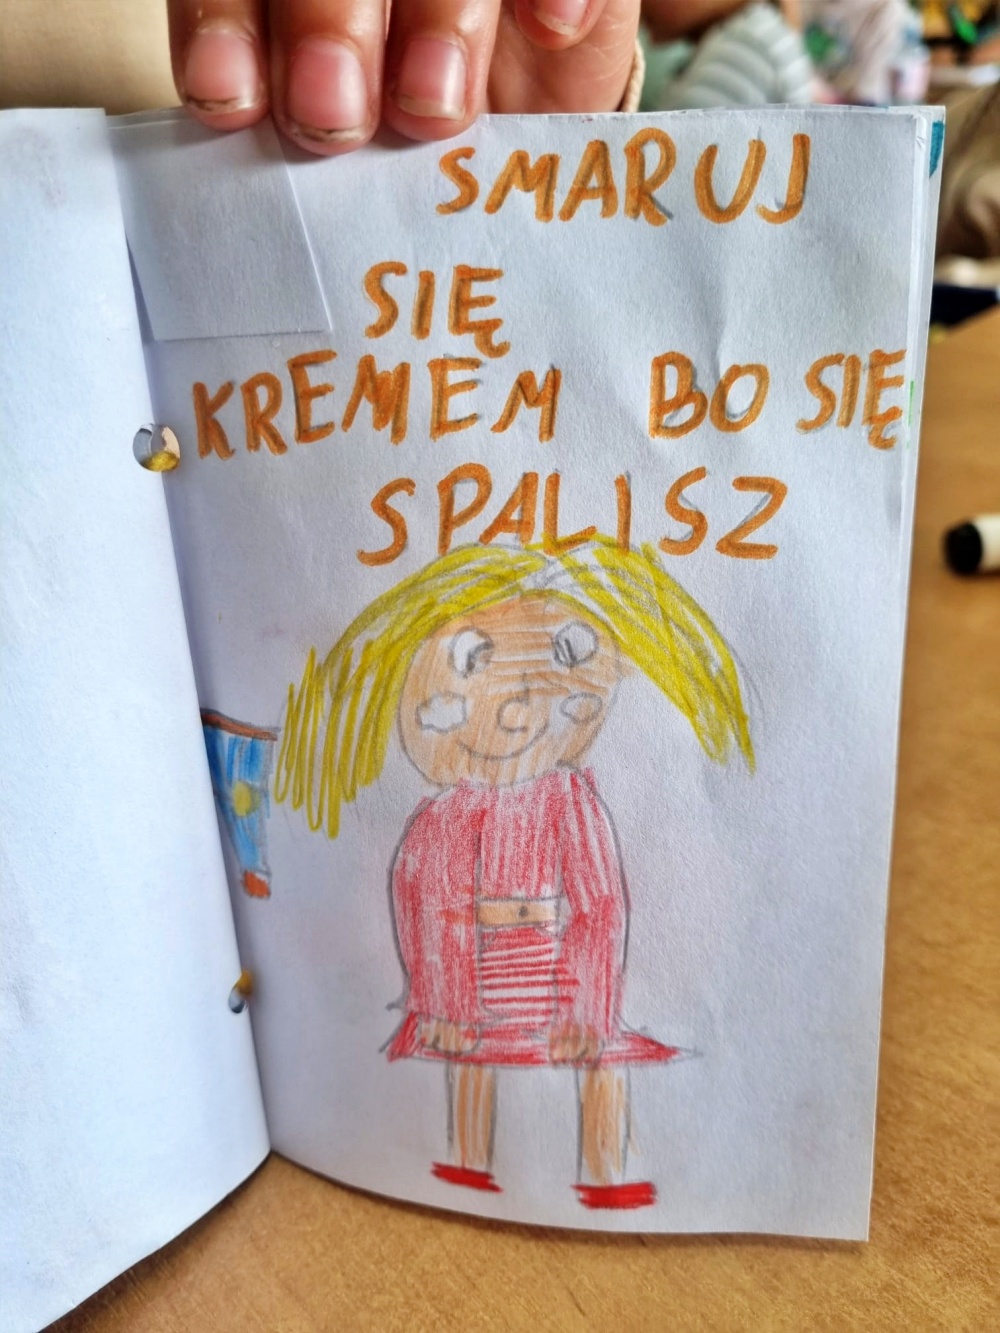 SMARUJ
SIĘ
KREMEM BO SIĘ
SPALISZ